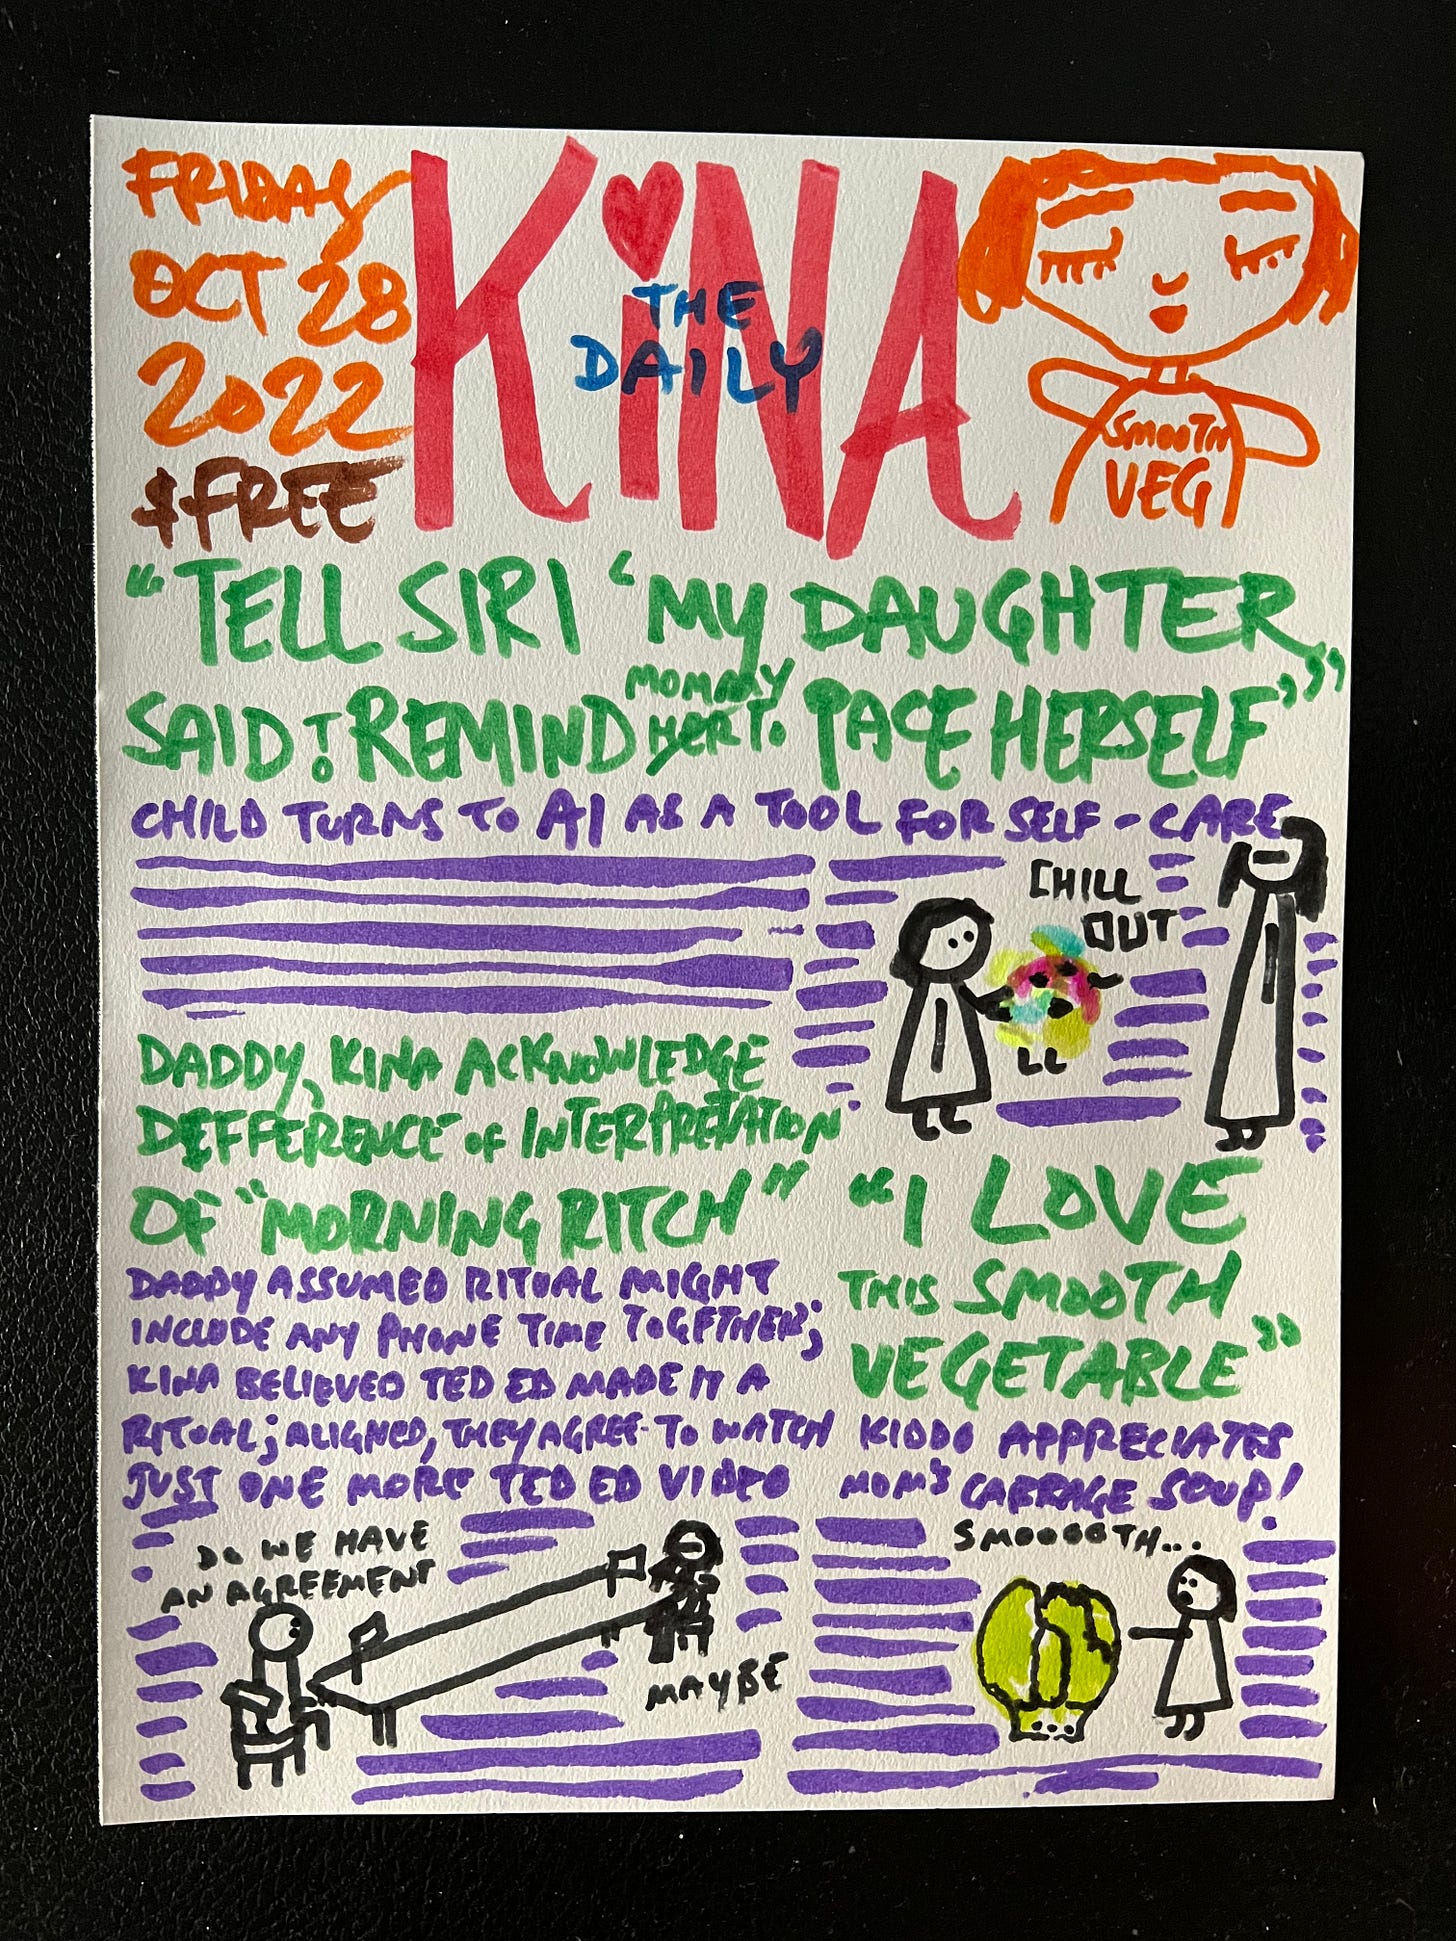 FRIDAY
OCT 28
2022
$FREE
KiNA
THE
DAILY
SMOOTH
VEG
"TELL SIRI 'MY DAUGHTER
SAID TO REMIND MOMMY HER TO PACE HERSELF'"
CHILD TURNS TO AI AS A TOOL FOR SELF-CARE
CHILL
OUT
DADDY, KINA ACKNOWLEDGE
DEFFERENCE OF INTERPRETATION
OF "MORNING RITCH"
DADDY ASSUMED RITUAL MIGHT
INCLUDE ANY PHONE TIME TOGETHER;
KINA BELIEVED TED ED MADE IT A
RITUAL; ALIGNED, THEY AGREE TO WATCH
JUST ONE MORE TED ED VIDEO
DO WE HAVE
AN AGREEMENT
MAYBE
"I LOVE
THIS SMOOTH
VEGETABLE"
KIDDO APPRECIATES
MOM'S CABBAGE SOUP!
SMOOOOTH...